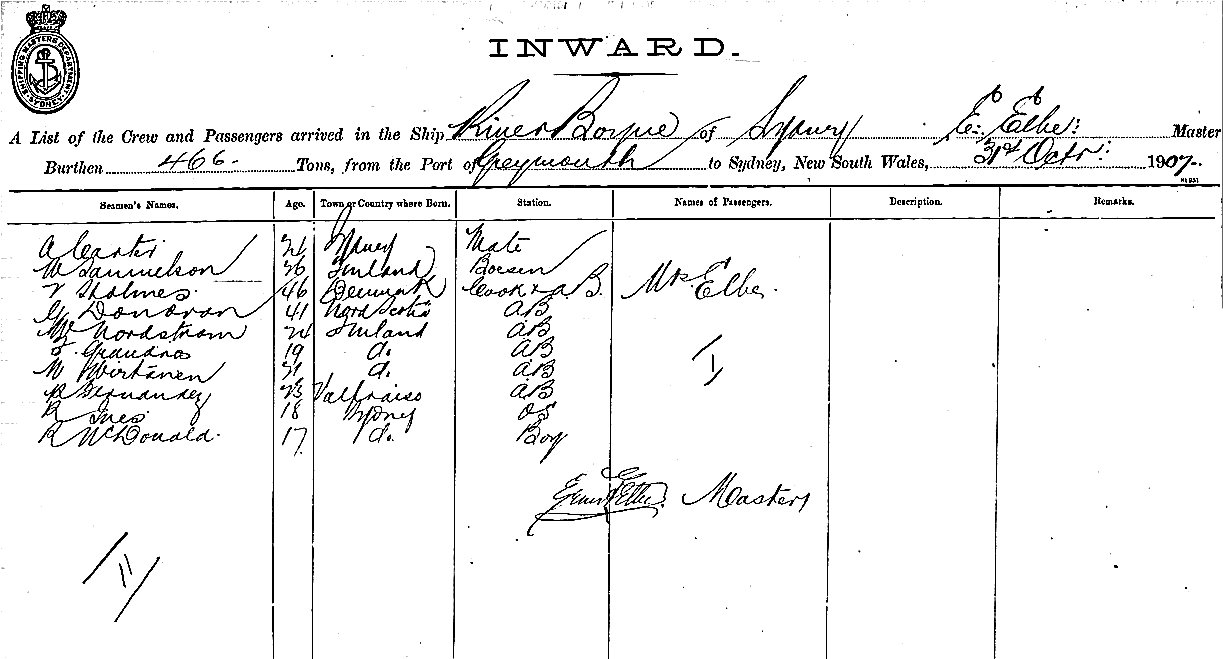 SHIPPING MASTERS DEPARTMENT SYDNEY
INWARD.
A List of the Crew and Passengers arrived in the Ship River Boyne of Sydney E. Elbe: Master
Burthen 466 Tons, from the Port of Greymouth to Sydney, New South Wales, 31st Octr: 1907
Seamen's Names. Age. Town or Country where Born. Station. Names of Passengers. Description. Remarks.
A Carter 21 Sydney Mate
W Samuelson 26 Finland Boesen
Holmes 46 Denmark Cook & AB. Mrs Elbe.
Donovan 41 Nova Scotia AB
Nordstrom 24 Finland AB
19 do. AB I
Wirtanen 21 do. AB
Fernandez 23 Valparaiso AB
R Ives 18 Sydney OS
R McDonald. 17 do. Boy
Ernest Elbe. Master
11